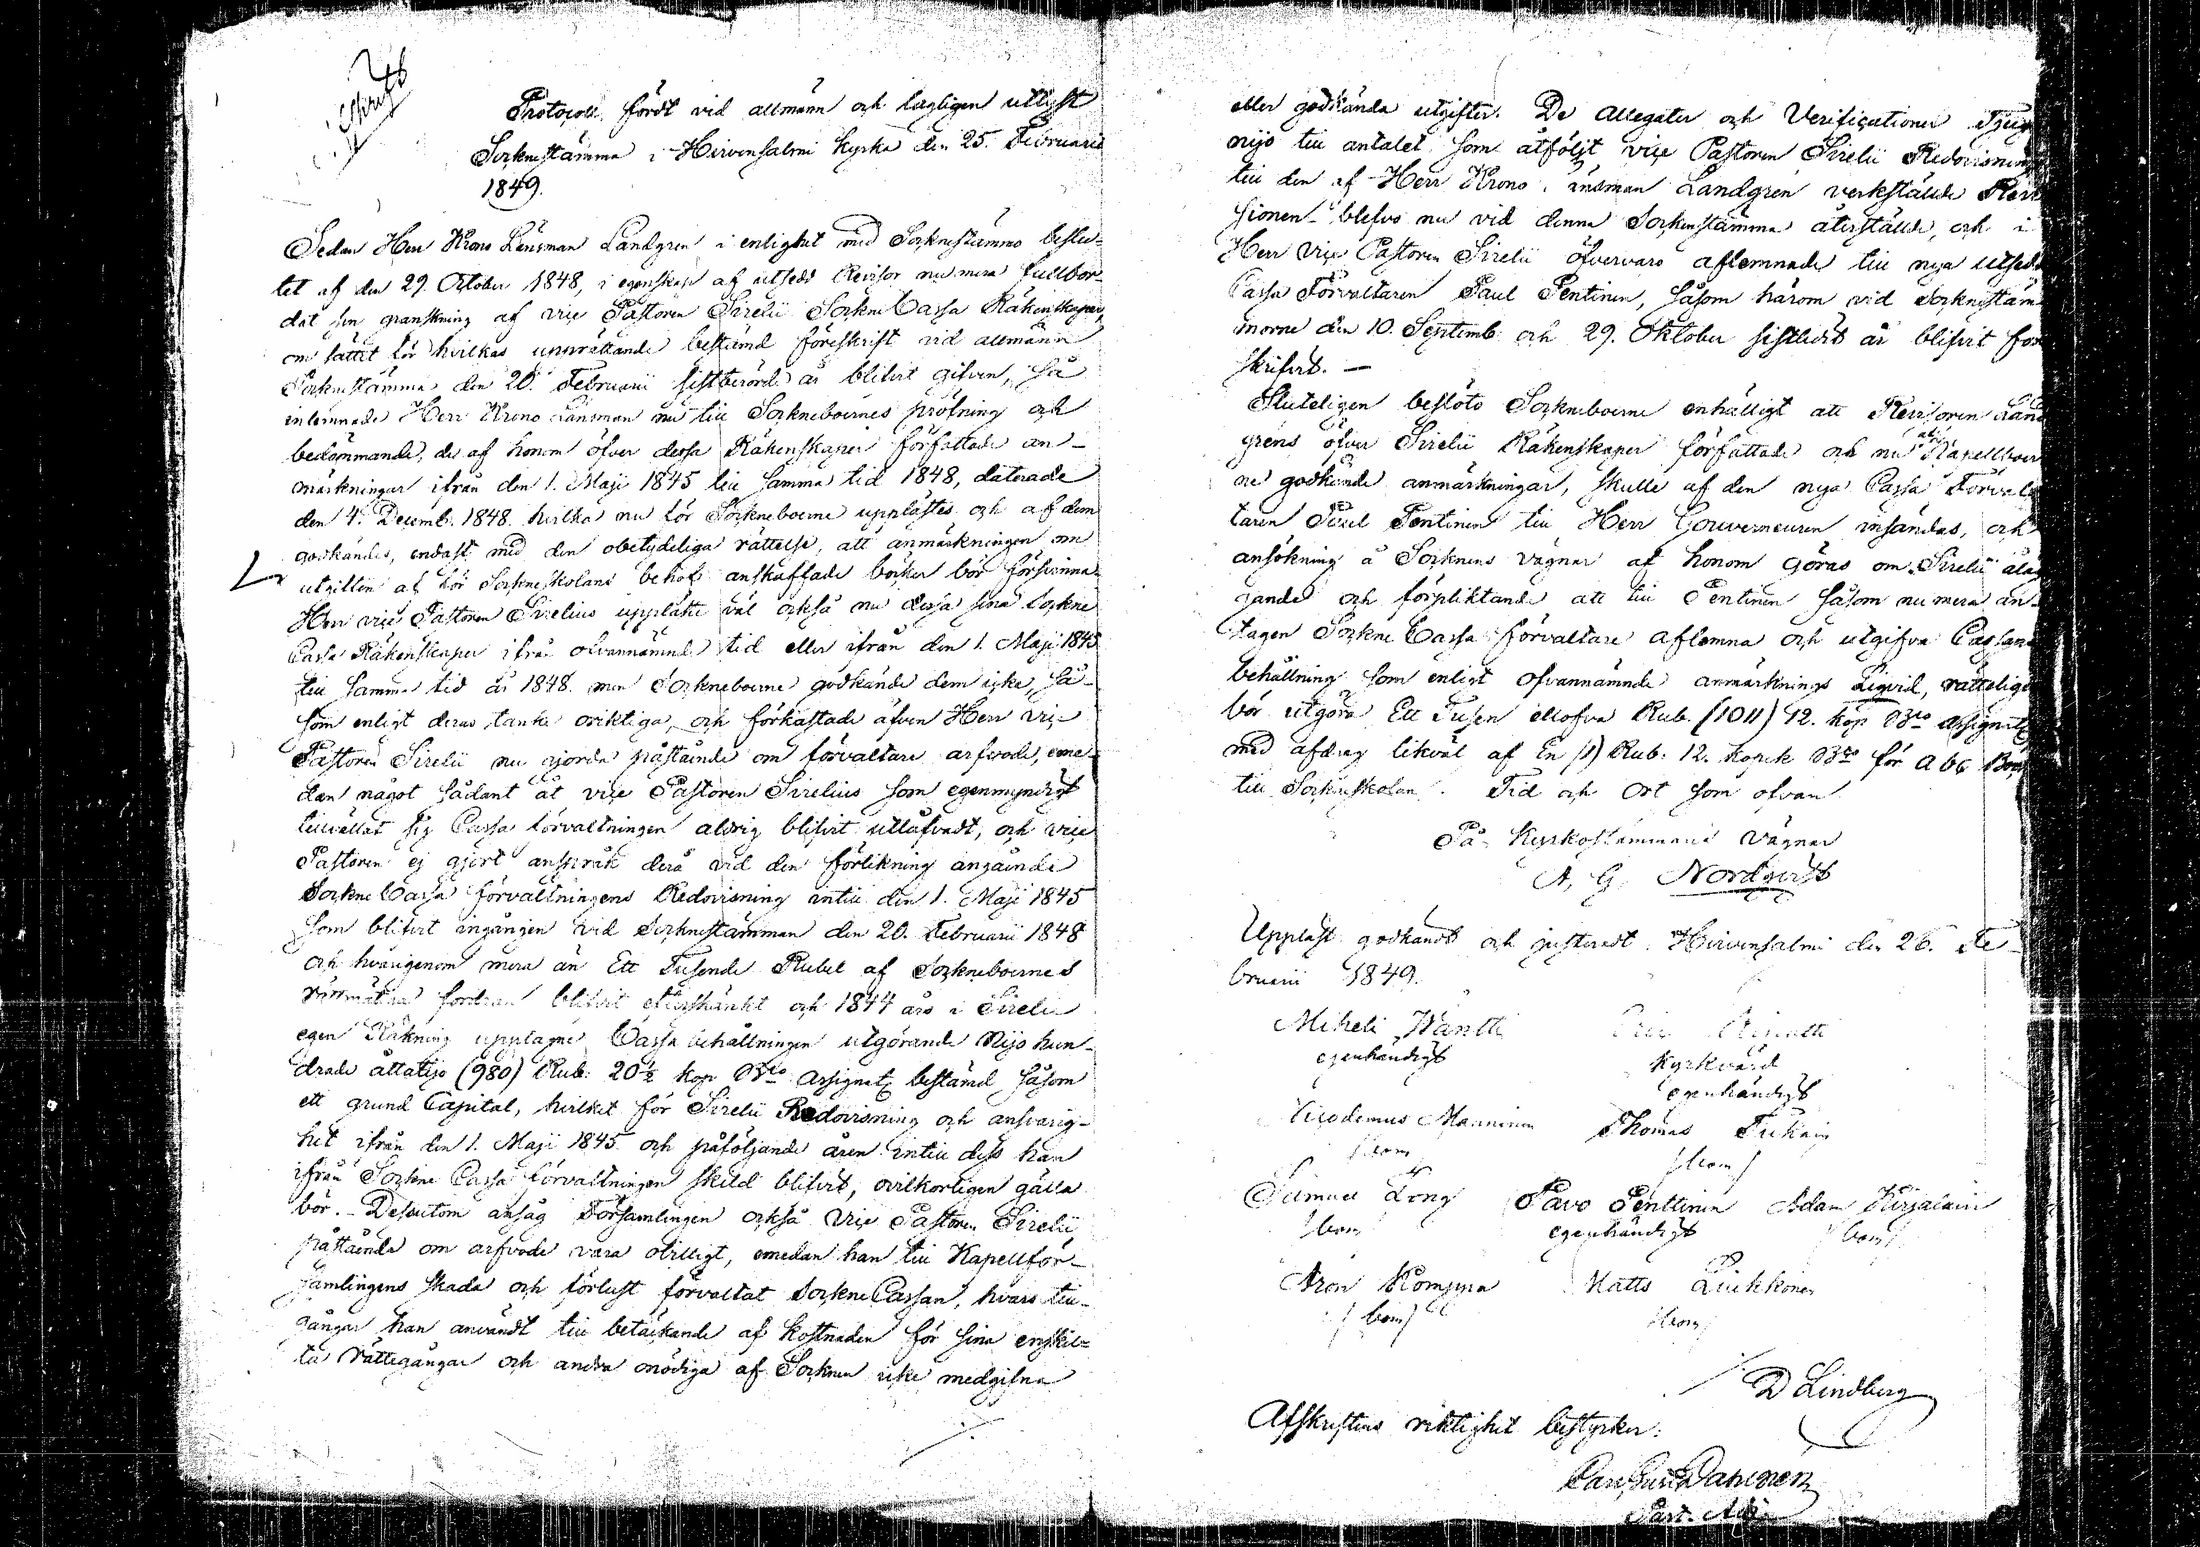 Afskrift
Protocoll fördt vid allmänn och lagligen utlyst
Socknestämma i Hirvensalmi Kyrka den 25. Februarii
1849.
Sedan Herr Krono Länsman Landgren i enlighet med Socknestämmo beslu-
tet af den 29. October 1848, i egenskap af utsedd Revisor nu mera fullbor-
dat sin granskning af vice Pastoren Sirelii Sockne Cassa Räkenskaper,
om sättet för hvilkas upprättande bestämd föreskrift vid allmänn
Sockenstämma den 20. Februarii sistberörde år blifvit gifven, så
inlemnade Herr Krono Länsman nu till Socknеboernes pröfning och
bedömmande, de af honom öfver dessa Räkenskaper författade an-
märkningar ifrån den 1. Maji 1845 till samma tid 1848, daterade
den 4. Decemb. 1848. hvilka nu för Sockneboerne upplästes och af dem
godkändes, endast med den obetydeliga rättelse, att anmärkningen om
utgiften af för Sockneskolans behof anskaffade böcker bör försvinna.
Herr vice Pastoren Sirelius uppläste väl också nu dessa sina Sockne
Cassa Räkenskaper ifrån ofvannämnde tid eller ifrån den 1. Maji 1845
till samma tid år 1848. men Sockneboerne godkände dem icke, så-
som enligt deras tanke oriktiga, och förkastade äfven Herr vice
Pastoren Sirelii nu gjorda påstående om förvaltare arfvode, eme-
dan något sådant åt vice Pastoren Sirelius som egenmyndigt
tillvällat sig Cassa förvaltningen aldrig blifvit utlåfvadt, och vice
Pastoren ej gjort anspråk derå vid den förlikning angående
Sockne Cassa förvaltningens Redovisning intill den 1. Maji 1845
som blifvit ingången vid Sockenstämman den 20. Februarii 1848
och hvarigenom mera än Ett Tusende Rubel af Sockneboernes
rättmätiga fordran blifvit efterskänkt och 1844 års i Sirelii
egen Räkning upptagne Cassa behållningen utgörande Nijo hun-
drade åttatijo (980) Rub. 20½ kop. B:co Assignat: bestämd såsom
ett grund Capital, hvilket för Sirelii Redovisning och ansvarig-
het ifrån den 1. Maji 1845 och påföljande åren intill dess han
ifrån Sockne Cassa förvaltningen skild blifvit, ovilkorligen gälla
bör. - Dessutom ansåg Församlingen också vice Pastoren Sirelii
påstående om arfvode vara obilligt, emedan han till Kapellför-
samlingens skada och förlust förvaltat Sockne Cassan, hvars till-
gångar han användt till betäckande af kostnaden för sina enskil-
ta rättegångar och andra onödiga af Socknen icke medgifna
eller godkända utgifter. De Allegater och Verificationer Tjugu
nijo till antalet som åtföljt vice Pastoren Sirelii Redovisning
till den af Herr Krono Länsman Landgren verkställde Revi
sionen blefvo nu vid denna Sockenstämma återställde, och i
Herr vice Pastoren Sirelii öfvervaro aflemnade till nya utsedda
Cassa Förvaltaren Paul Pentinen, såsom härom vid Sockenstäm
morne den 10. Septemb. och 29. Oktober sistledit år blifvit för
skrifvit. —
Sluteligen beslöto Sockneboerne enhälligt att Revisoren Land
grens öfver Sirelii Räkenskaper författade och nu af Kapellboer
ne godkände anmärkningar, skulle af den nya Cassa Förval
taren Paul Pentinen till Herr Gouverneuren insändas, och
ansökning å Socknens vägnar af honom göras om Sirelii åläg
gande och förpliktande att till Pentinen såsom nu mera an-
tagen Sockne Cassa förvaltare aflemna och utgifva Cassans
behållning som enligt ofvannämnde anmärknings Liqvid, rätteligen
bör utgöra Ett Tusen ellofva Rub. (1011) 12. kop. B:co Assignat:
med afdrag likväl af En (1) Rub: 12. kopek B:co för Abc Böcker
till Sockneskolan. Tid och Ort som ofvan
På Kyrkostämmans Vägnar
A. G. Nordqvist
Uppläst godkändt och justeradt. Hirvensalmi den 26. Fe-
bruarii 1849.
Mikeli Wantti
egenhändigt
Kyrkvärd
egenhändigt
Nicodemus Manninen Thomas
/:bom:/ /:bom:/
Samuel Long Pavo Penttinen Adam Kirjalain
/:bom:/ egenhändigt /:bom:/
Aron Komppa Matts Liukkonen
/:bom:/ /:bom:/
D Lindberg
Afskriftens riktighet bestyrker:
Past. Adj.